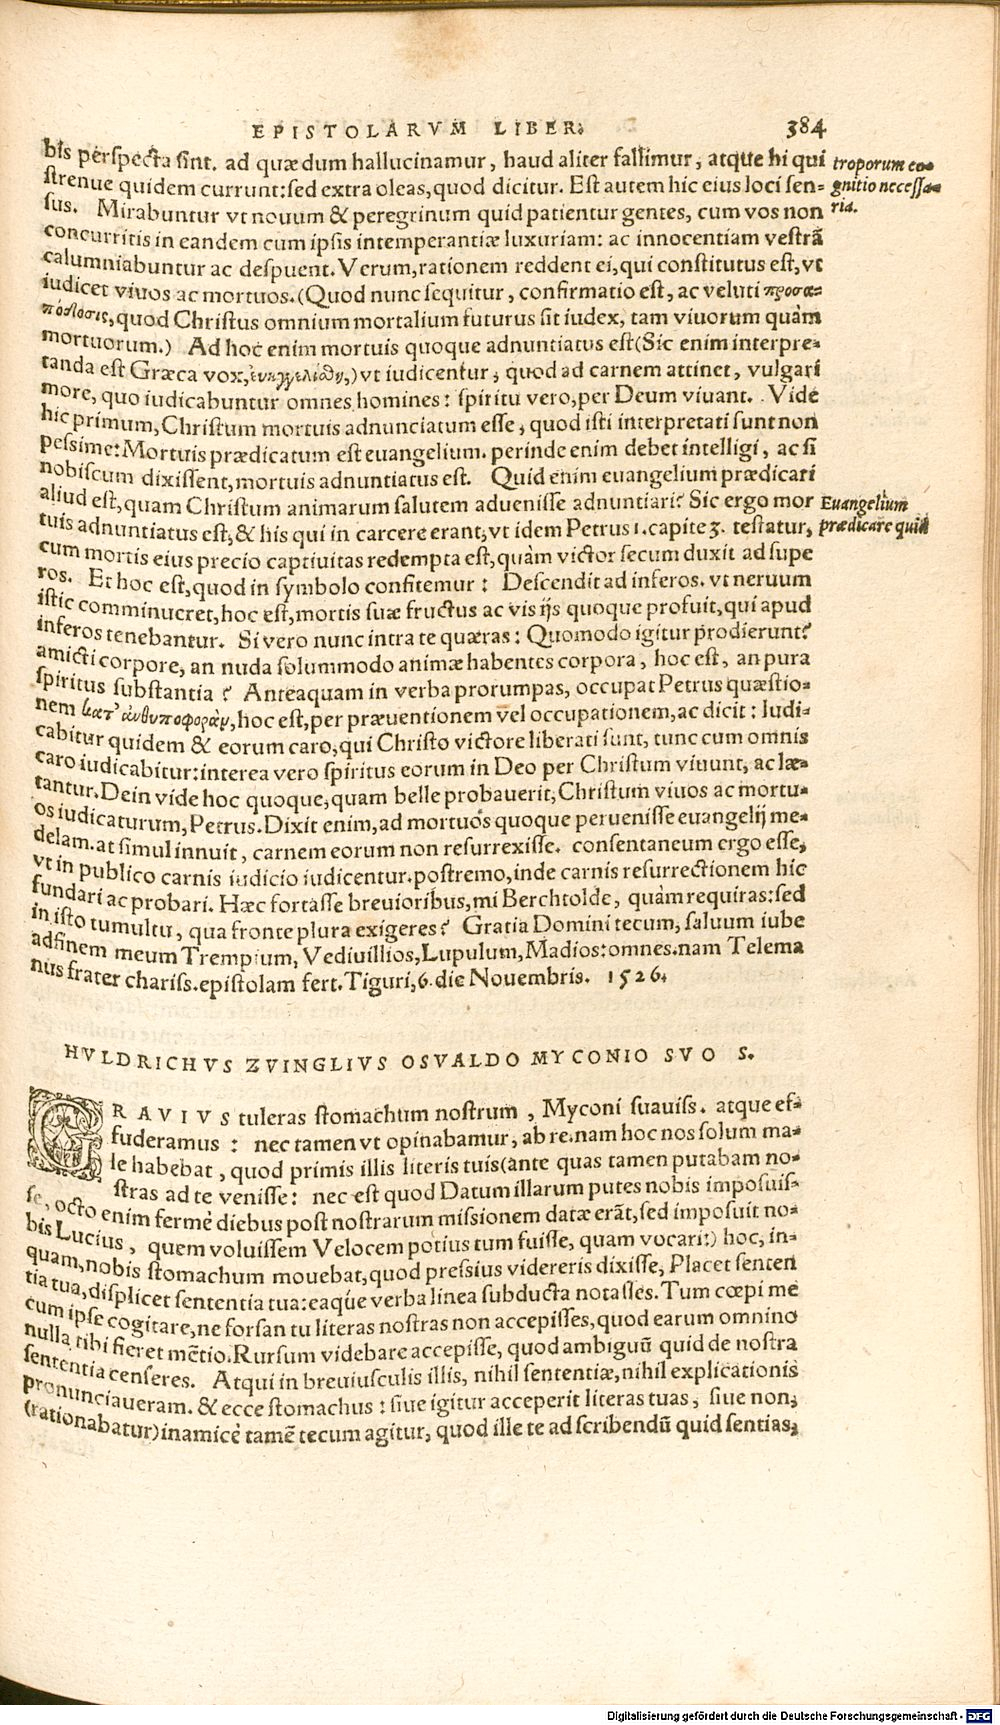 EPISTOLARVM LIBER. 384
bis perspecta sint. ad quæ dum hallucinamur, haud aliter fallimur, atque hi qui
strenue quidem currunt: sed extra oleas, quod dicitur. Est autem hic eius loci sen-
sus. Mirabuntur vt nouum & peregrinum quid patientur gentes, cum vos non
concurritis in eandem cum ipsis intemperantiæ luxuriam: ac innocentiam vestrã
calumniabuntur ac despuent. Verum, rationem reddent ei, qui constitutus est, vt
iudicet viuos ac mortuos. (Quod nunc sequitur, confirmatio est, ac veluti προσα-
πόδοσις, quod Christus omnium mortalium futurus sit iudex, tam viuorum quàm
mortuorum.) Ad hoc enim mortuis quoque adnuntiatus est (Sic enim interpre-
tanda est Græca vox, ) vt iudicentur, quod ad carnem attinet, vulgari
more, quo iudicabuntur omnes homines: spiritu vero, per Deum viuant. Vide
hic primum, Christum mortuis adnunciatum esse, quod isti interpretati sunt non
pessime: Mortuis prædicatum est euangelium. perinde enim debet intelligi, ac si
nobiscum dixissent, mortuis adnuntiatus est. Quid enim euangelium prædicari
aliud est, quam Christum animarum salutem aduenisse adnuntiari? Sic ergo mor
tuis adnuntiatus est, & his qui in carcere erant, vt idem Petrus 1. capite 3. testatur,
cum mortis eius precio captiuitas redempta est, quàm victor secum duxit ad supe
ros. Et hoc est, quod in symbolo confitemur: Descendit ad inferos. vt neruum
istic comminueret, hoc est, mortis suæ fructus ac vis ijs quoque profuit, qui apud
inferos tenebantur. Si vero nunc intra te quæras: Quomodo igitur prodierunt?
amicti corpore, an nuda solummodo animæ habentes corpora, hoc est, an pura
spiritus substantia? Anteaquam in verba prorumpas, occupat Petrus quæstio-
nem κατ' ἀνθυποφορὰν, hoc est, per præuentionem vel occupationem, ac dicit: Iudi-
cabitur quidem & eorum caro, qui Christo victore liberati sunt, tunc cum omnis
caro iudicabitur: interea vero spiritus eorum in Deo per Christum viuunt, ac læ-
tantur. Dein vide hoc quoque, quam belle probauerit, Christum viuos ac mortu-
os iudicaturum, Petrus. Dixit enim, ad mortuos quoque peruenisse euangelij me-
delam. at simul innuit, carnem eorum non resurrexisse. consentaneum ergo esse,
vt in publico carnis iudicio iudicentur. postremo, inde carnis resurrectionem hic
fundari ac probari. Hæc fortasse breuioribus, mi Berchtolde, quàm requiras: sed
in isto tumultu, qua fronte plura exigeres? Gratia Domini tecum, saluum iube
adfinem meum Trempium, Vediuillios, Lupulum, Madios: omnes. nam Telema
nus frater chariss. epistolam fert. Tiguri, 6. die Nouembris. 1526.
troporum co-
gnitio necessa-
ria.
Euangelium
prædicare quid
HVLDRICHVS ZVINGLIVS OSVALDO MYCONIO SVO S.
GRAVIVS tuleras stomachum nostrum, Myconi suauiss. atque ef-
fuderamus: nec tamen vt opinabamur, ab re. nam hoc nos solum ma-
le habebat, quod primis illis literis tuis (ante quas tamen putabam no-
stras ad te venisse: nec est quod Datum illarum putes nobis imposuis-
se, octo enim fermè diebus post nostrarum missionem datæ erãt, sed imposuit no-
bis Lucius, quem voluissem Velocem potius tum fuisse, quam vocari:) hoc, in-
quam, nobis stomachum mouebat, quod pressius videreris dixisse, Placet senten
tia tua, displicet sententia tua: eaq́ue verba linea subducta notasses. Tum cœpi me
cum ipse cogitare, ne forsan tu literas nostras non accepisses, quod earum omnino
nulla tibi fieret mẽtio. Rursum videbare accepisse, quod ambiguũ quid de nostra
sententia censeres. Atqui in breuiusculis illis, nihil sententiæ, nihil explicationis
pronunciaueram. & ecce stomachus: siue igitur acceperit literas tuas, siue non,
(rationabatur) inamicè tamẽ tecum agitur, quod ille te ad scribendũ quid sentias,
Digitalisierung gefördert durch die Deutsche Forschungsgemeinschaft - DFG